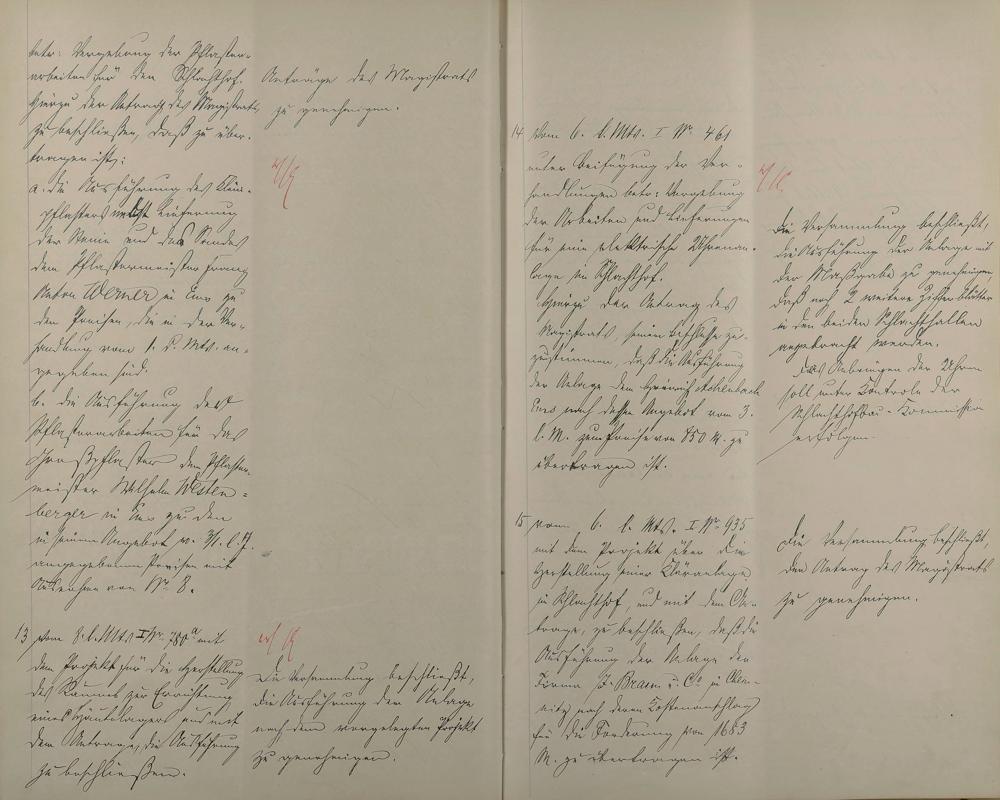 betr: Vergebung der Pflaster-
arbeiten für den Schlachthof.
Hierzu der Antrag des Magistrats
zu beschließen, daß zu über-
tragen ist:
a. die Ausführung des Klein-
pflasters nebst Lieferung
der Steine und des Sandes
dem Pflastermeister Franz
Anton Werner in Ems zu
den Preisen, die in der Ver-
handlung vom 1. d. Mts. an-
gegeben sind.
b. die Ausführung der
Pflasterarbeiten für das
Großpflaster dem Pflaster-
meister Wilhelm Westen-
berger in Ems zu den
in seinem Angebot v.
angegebenen Preisen mit
Ausnahme von Nr. 8.
13 vom 8. l. Mts I Nr. 780a mit
dem Projekt für die Herstellung
des Raumes zur Errichtung
eines Häutelagers und mit
dem Antrage, die Ausführung
zu beschließen.
Anträge des Magistrats
zu genehmigen.
Die Versammlung beschließt,
die Ausführung der Anlage
nach dem vorgelegten Projekt
zu genehmigen.
14 vom 6. l. Mts. I Nr. 461
unter Beifügung der Ver-
handlungen betr: Vergebung
der Arbeiten und Lieferungen
für eine elektrische Uhrenan-
lage im Schlachthof.
Hierzu der Antrag des
Magistrats, seinem Beschlusse zu-
zustimmen, daß die Ausführung
der Anlage dem Heinrich Achenbach
Ems nach dessen Angebot vom 3.
l. M. zum Preise von 850 M. zu
übertragen ist.
15 vom 6. l. Mts. I Nr. 935
mit dem Projekt über die
Herstellung einer Kläranlage
im Schlachthof, und mit dem An-
trage, zu beschließen, daß die
Ausführung der Anlage der
Firma J. Braun u. Co. in
nach deren Kostenanschlag
für die Forderung von 1683
M. zu übertragen ist.
Die Versammlung beschließt,
die Ausführung der Anlage mit
der Maßgabe zu genehmigen
daß noch 2 weitere Zifferblätter
in den beiden Schlachthallen
angebracht werden.
Das Anbringen der Uhren
soll unter Kontrole der
Schlachthofbau-Kommission
erfolgen.
Die Versammlung beschließt,
den Antrag des Magistrats
zu genehmigen.